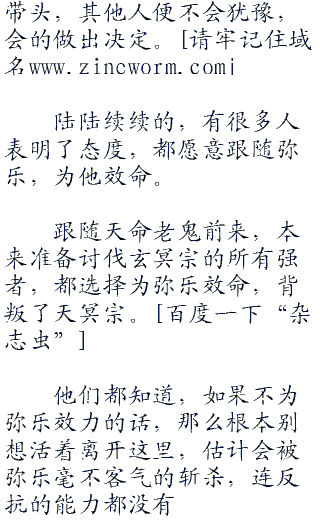 带头，其他人便不会犹豫，
会的做出决定。[请牢记住域
名www.zincworm.com|
陆陆续续的，有很多人
表明了态度，都愿意跟随弥
乐，为他效命。
跟随天命老鬼前来，本
来准备讨伐玄冥宗的所有强
者，都选择为弥乐效命，背
叛了天冥宗。[百度一下“杂
志虫”]
他们都知道，如果不为
弥乐效力的话，那么根本别
想活着离开这里，估计会被
弥乐毫不客气的斩杀，连反
抗的能力都没有